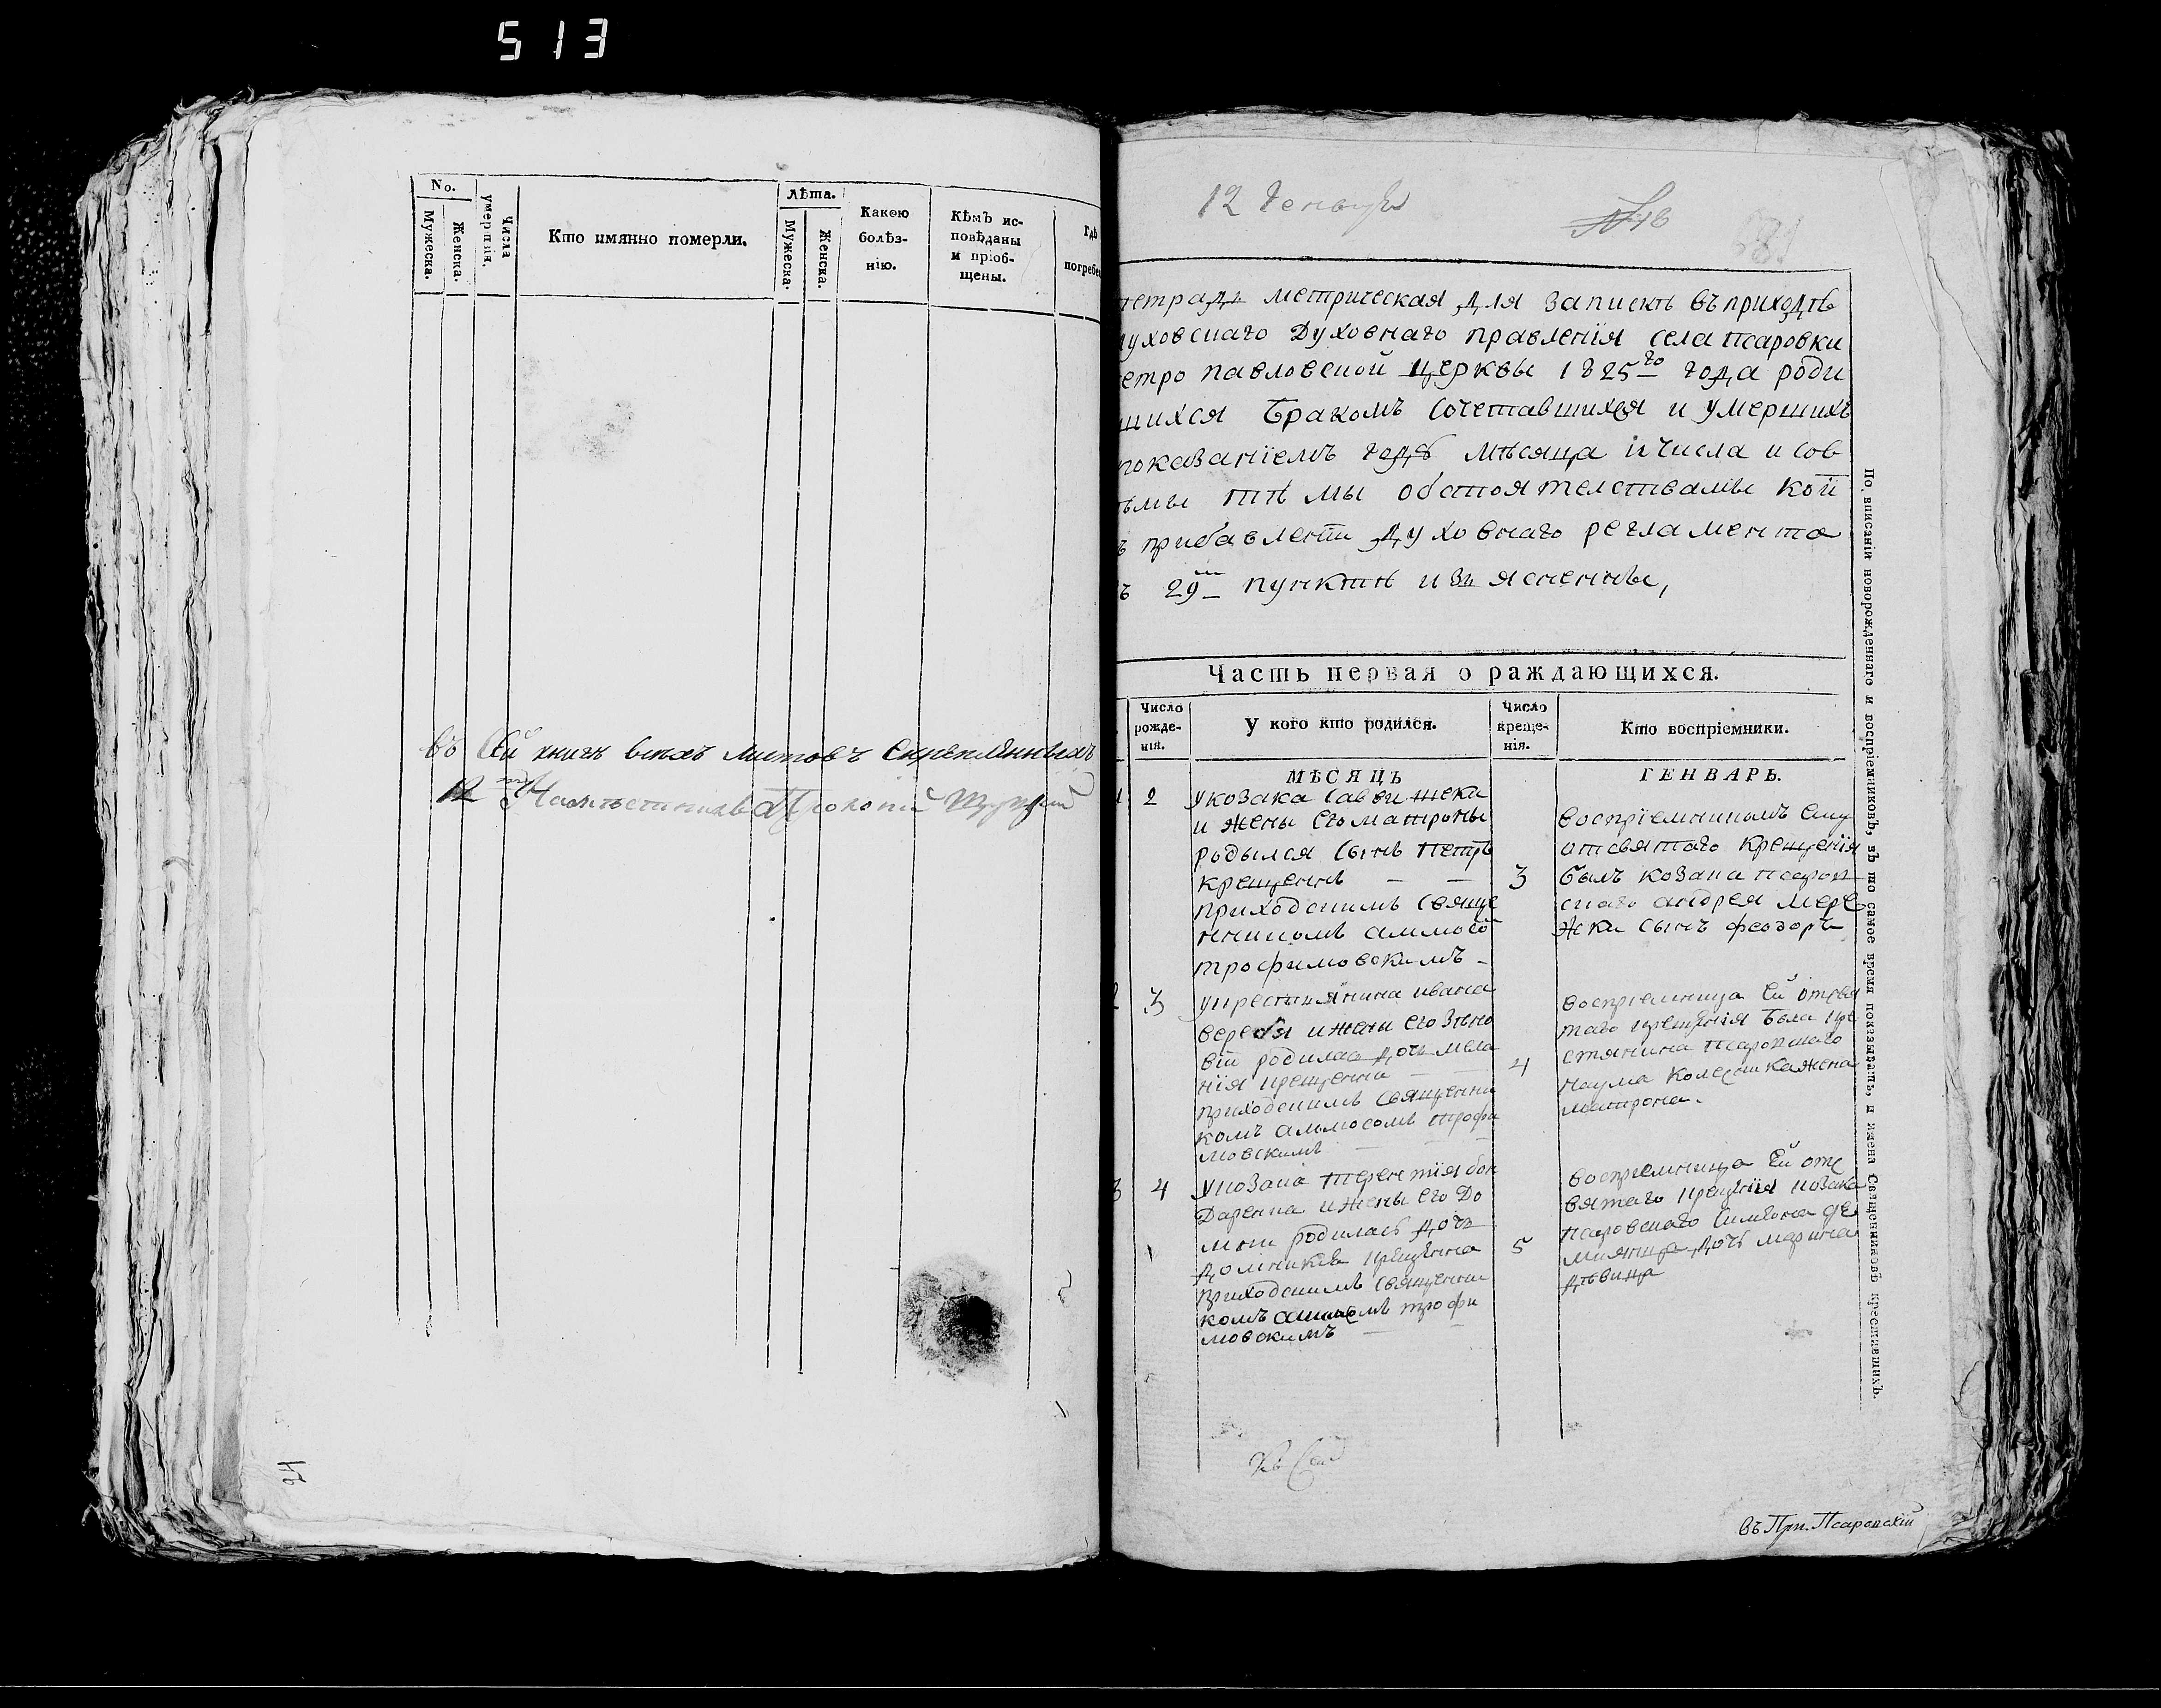 513
No.
Мужеска.
Женска.
Числа умерших.
Кто имянно померли.
Лѣта.
Мужеска.
Женска.
Какою
болѣз-
нію.
Кѣмъ ис-
повѣданы
и пріоб-
щены.
Гдѣ
погребе
въ Сей книгѣ всехъ листовъ скрепленныхъ
12
Прокопий
12
тетрадь метрическая для записки въ приходѣ
луховскаго Духовнаго правленія села Псаровки
етро павловской церквы 1825го года роди
шихся бракомъ Сочетавшихся и умершихъ
показаніемъ года мѣсяца и числа и сов
ѣмы тѣмы обстоятелствамы кои
ъ прибавленіи духовнаго регламента
ъ 29м пунктѣ изъясненны,
Часть первая о раждающихся.
Число
рожде-
нія.
У кого кто родился.
Число
креще-
нія.
Кто воспріемники.
МѢСЯЦЪ
ГЕНВАРЬ.
1 2
у козака Саввы
и жены его матроны
родылся сынъ Петръ
крещеннъ
приходскимъ Свяще
нникомъ
трофимовскимъ
3
воспріемникомъ ему
отсвятаго крещенія
былъ козака псаров
скаго андрея мере
жки сынъ феодоръ
2 3
у крестьянина ивана
и жены его Зѣно
вїи родилась дочь мела
нія крещенна
приходскимъ священни
комъ трофи
мовскимъ
4
воспріемница ей отсвя
таго крещенія была кре
стянина псаровскаго
наума жена
матрона.
3 4
у козака терентїя бон
даренка и жены его До
мни родилась дочь
домникія крещенна
приходскимъ священни
комъ трофи
мовскимъ
5
воспріемница ей отс
вятаго крещенія козака
псаровскаго Симеона де
дочь марина
дѣвица
По вписаніи новорожденнаго и воспріемниковъ, въ то самое время показывать, и имена Священниковъ крестившихъ.
въ Прп. Псаровскій